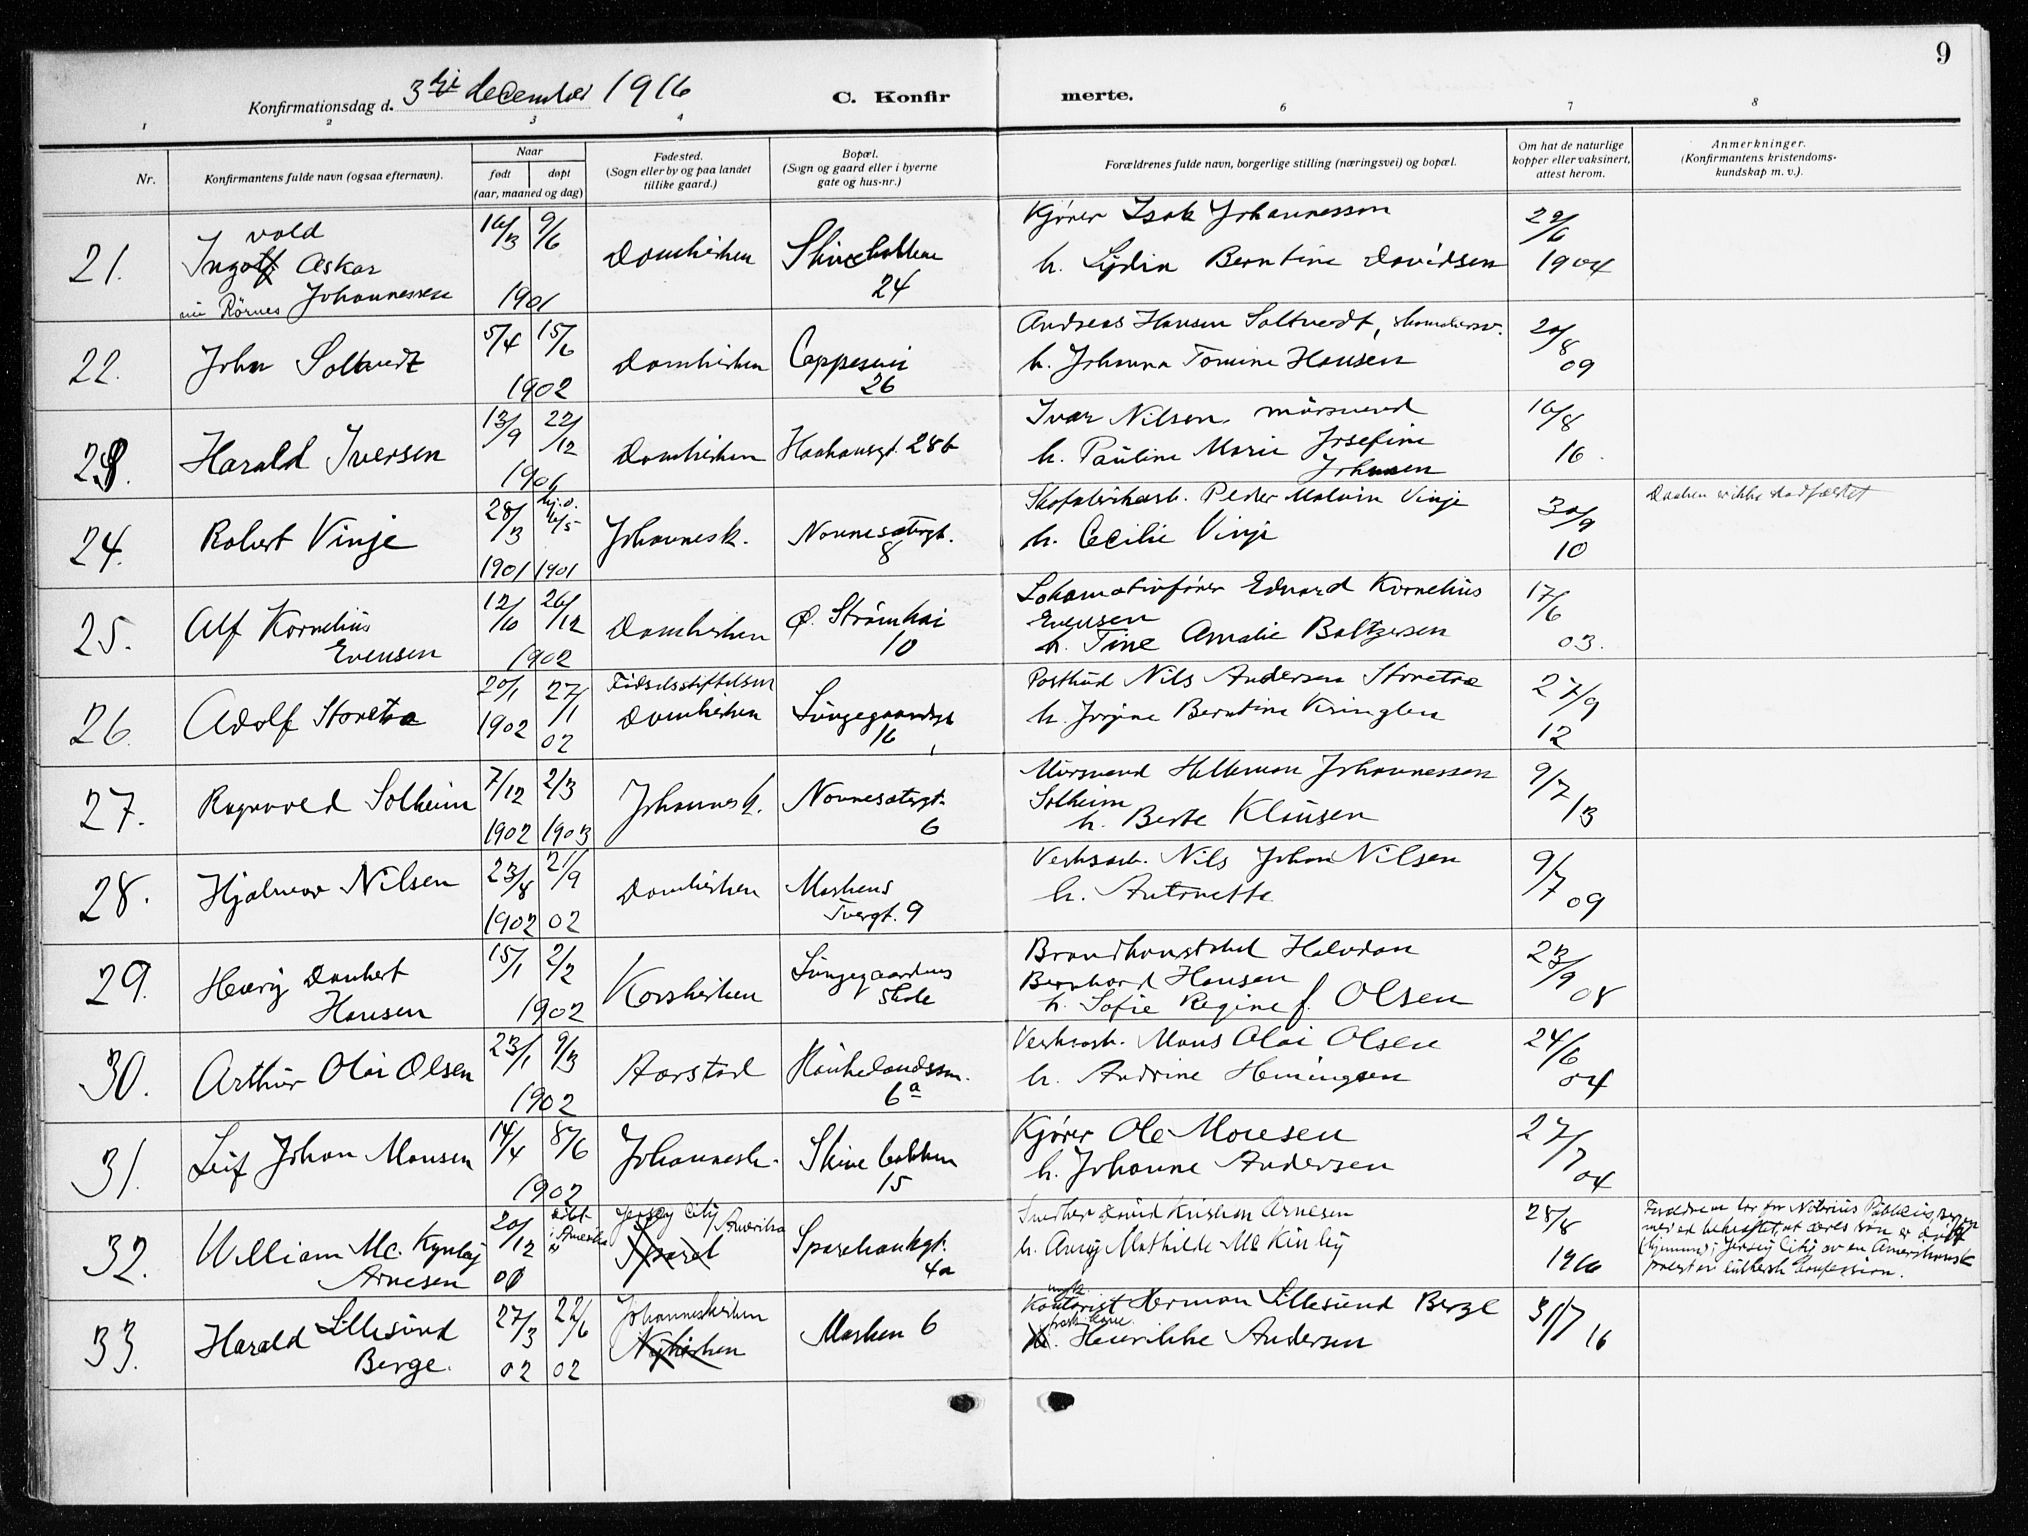 9
Konfirmationsdag d. 3die december 1916
C. Konfirmerte.
1 2 3 4 6 7 8
Nr.
Konfirmantens fulde navn (ogsaa efternavn).
Naar
født
døpt
(aar, maaned og dag)
Fødested.
(Sogn eller by og paa landet
tillike gaard.)
Bopæl.
(Sogn og gaard eller i byerne
gate og hus-nr.)
Forældrenes fulde navn, borgerlige stilling (næringsvei) og bopæl.
Om hat de naturlige
kopper eller vaksinert,
attest herom.
Anmerkninger.
(Konfirmantens kristendoms-
kundskap m. v.).
21.
vold
Ingolf Oskar
nu Rörnes Johannessen
16/3 9/6
1901
Domkirken
Skivebakken
24
Kjører Isak Johannesson
h. Lydia Berntine Davidsen
29/6
1904
22.
John Soltvedt
5/4 15/6
1902
Domkirken
Cappesvei
26
Andreas Hansen Soltvedt,
h. Johanna Tomine Hansen
20/8
09
23.
Harald Iversen
13/9 22/12
1901
Domkirken
Haakonsgt. 28b
Ivar Nilsen, mursvend
h. Pauline Marie Josefine
Johnsen
16/8
16.
24.
Robert Vinje
28/3 hj.d. 16/5
1901 1901
Johannesk.
Nonnesætergt.
8
Skofabrikarb. Peder Malvin Vinje
h. Cecilie Vinje
30/9
10
Daaben er ikke stadfæstet
25.
Alf Kornelius
Evensen
12/10 26/12
1902
Domkirken
Ø. Strømkai
10
Lokomotivfører Edvard Kornelius
Evensen
h. Tine Amalie Baltzersen
17/6
03.
26.
Adolf Storetræ
20/1 27/1
1902 02
Fødselsstiftelsen
Domkirken
Lungegaardsgt
16
Postbud Nils Andersen Storetræ
h. Jørgine Berntine
27/9
12
27.
Ragnvald Solheim
7/12 2/3
1902 1903
Johannesk.
Nonnesætergt.
6
Mursvend Hilleman Johannessen
Solheim
h. Berte Klausen
9/7
13
28.
Hjalmar Nilsen
23/8 21/9
1902 02
Domkirken
Markens
Tvergt. 9
Verksarb. Nils Johan Nilsen
h. Antonette
9/7
09
29.
Henry Dankert
Hansen
15/1 2/2
1902
Korskirken
Lungegaardens
skole
Brandkonstabel Halvdan
Bernhard Hansen
h. Sofie Regine f. Olsen
23/9
08
30.
Arthur Olai Olsen
23/1 9/3
1902
Aarstad
Haukelandssm.
6a
Verksarb. Mons Olai Olsen
h. Andrine Henningsen
24/6
04
31.
Leif Johan Monsen
14/4 8/6
1902
Johannesk.
Skivebakken
15
Kjører Ole Monsen
h. Johanne Andersen
27/7
04
32.
William Mc. Kynley
Arnesen
20/12 døbt
i Amerika
01
Jersey City
Amerika
Sparebankgt.
4a
Snedker David Kristian Arnesen
h. Anny Mathilde Mc Kinley
28/8
1916
Forældrene har for Notarius Publicus, Bergen
med ed bekræftet, at deres søn er døbt
(hjemme) i Jersey City av en Amerikansk
prest av luthersk konfession.
33.
Harald Lillesund
Berge.
27/3 22/6
02 02
Johanneskirken
Nykirken
Marken 6
Kontorist Herman Lillesund Berge
Henrikke Andersen
31/7
16